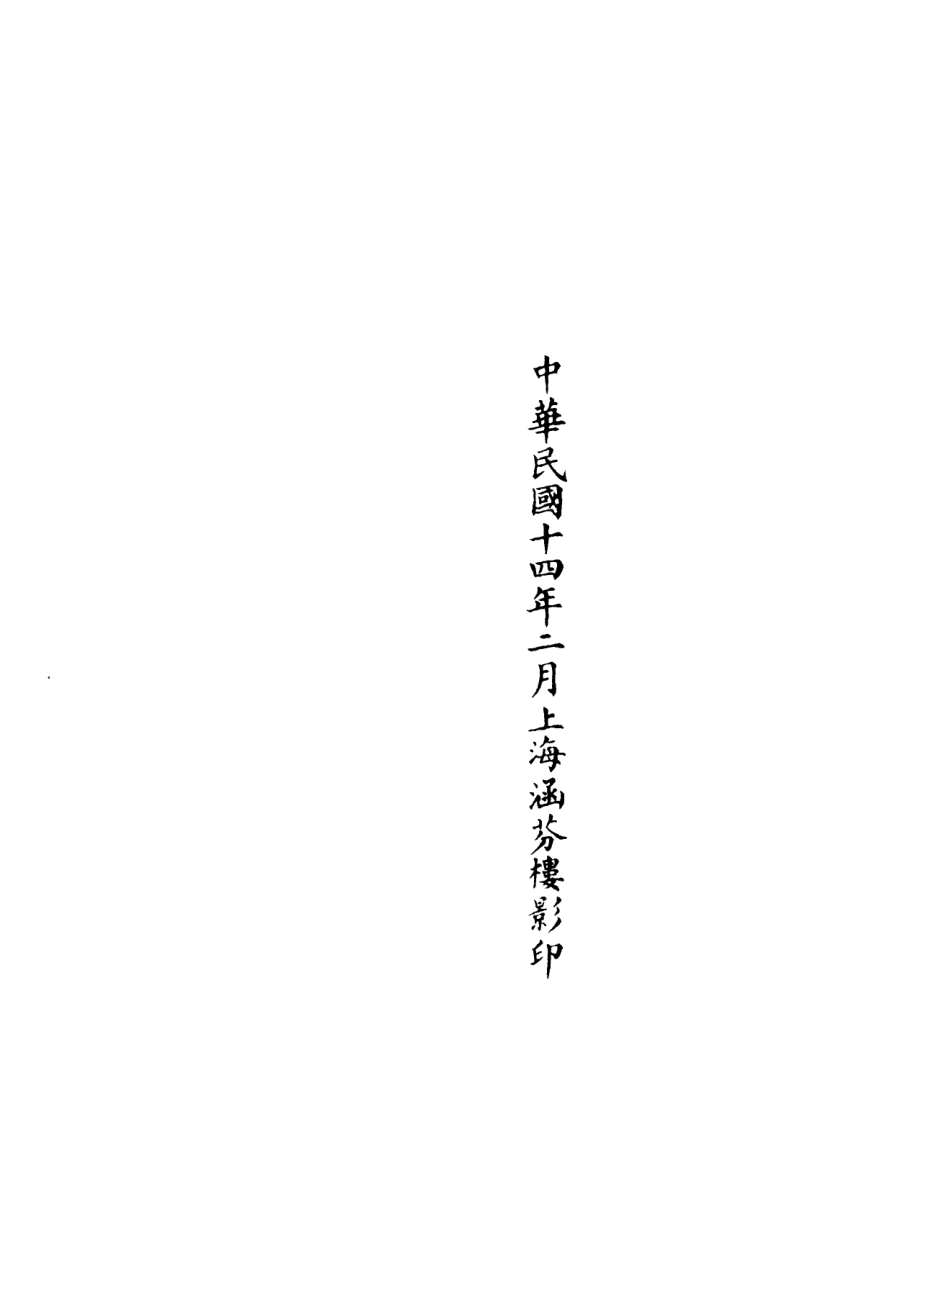 中華民國十四年二月上海涵芬樓影印